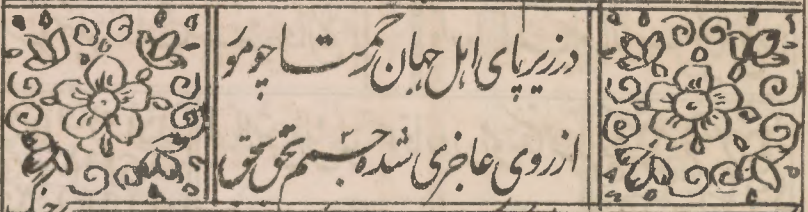 در زیر پای اهل جهان چو مور
از روی عاجزی شده جسم تحق تحق